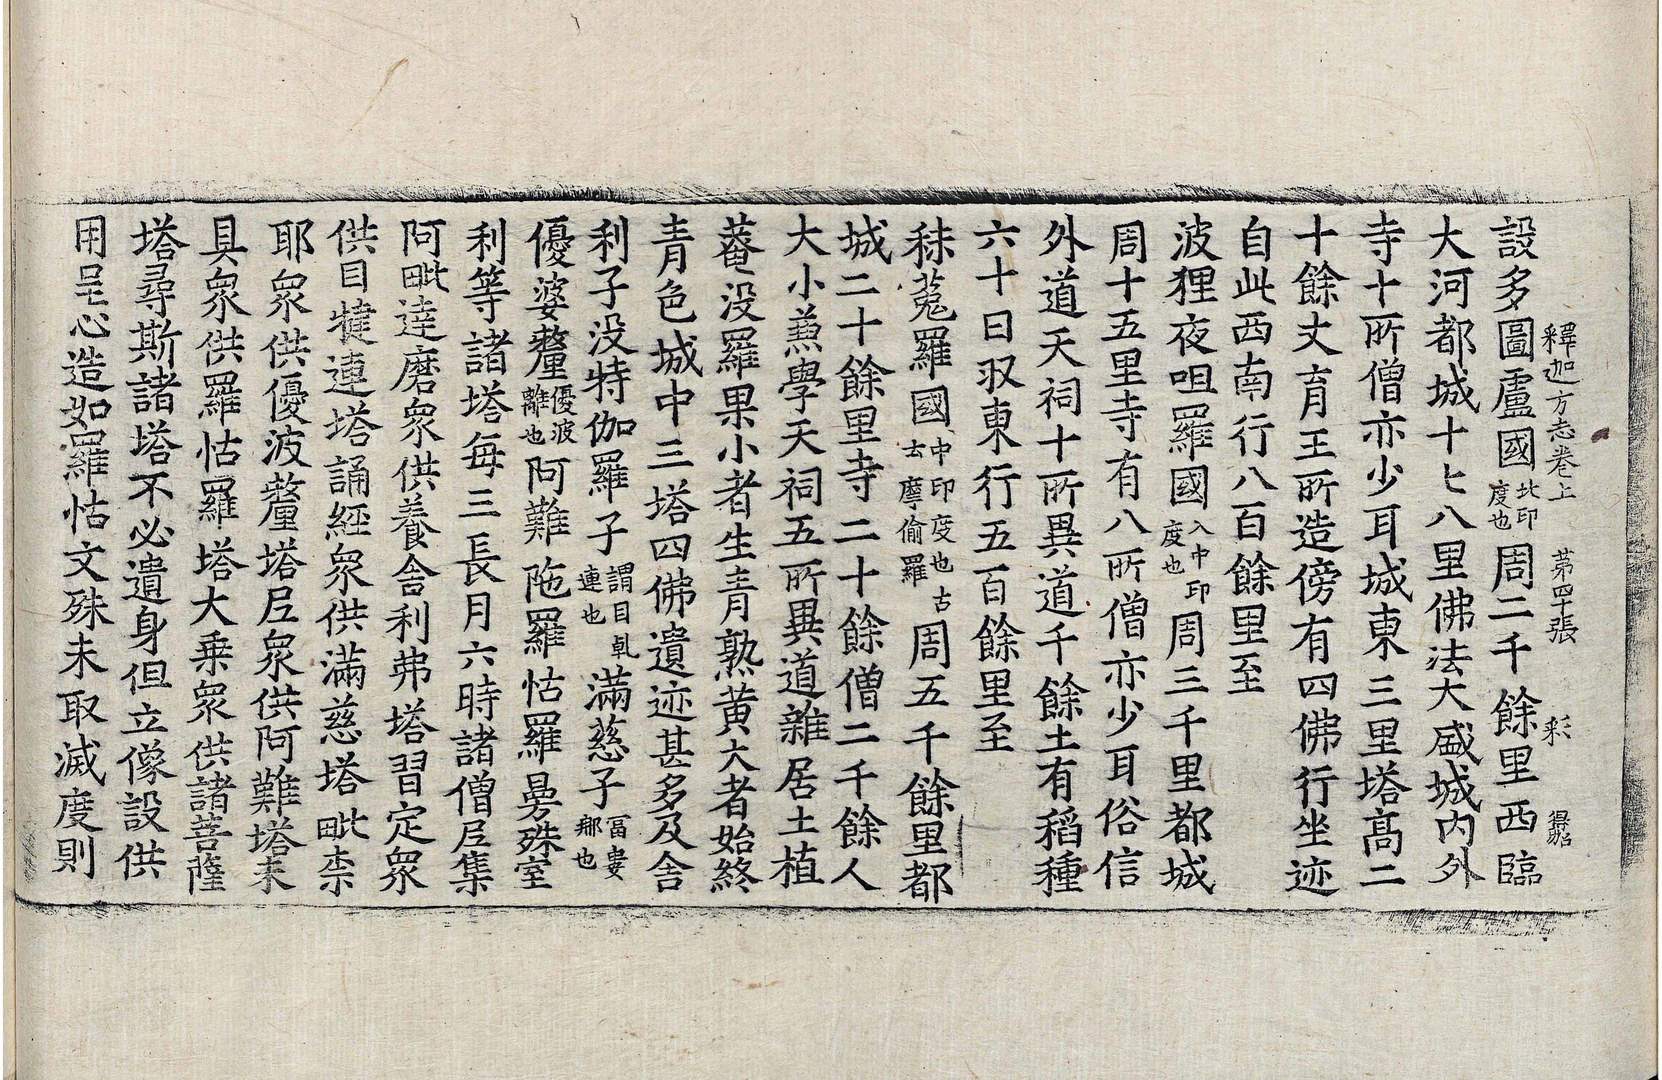 釋迦方志卷上 苐四十張 彩
設多圖盧國北印度也周二千餘里西臨
大河都城十七八里佛法大盛城內外
寺十所僧亦少耳城東三里塔高二
十餘丈育王所造傍有四佛行坐迹
自此西南行八百餘里至
波狸夜呾羅國入中印度也周三千里都城
周十五里寺有八所僧亦少耳俗信
外道天祠十所異道千餘土有稻種
六十日収東行五百餘里至
秣菟羅國中印度也古云摩偷羅周五千餘里都
城二十餘里寺二十餘僧二千餘人
大小兼學天祠五所異道雜居土植
菴没羅果小者生青熟黄大者始終
青色城中三塔四佛遺迹甚多及舍
利子没特伽羅子謂目乹連也滿慈子冨婁郍也
優婆釐優波離也阿難陁羅怙羅曼殊室
利等諸塔每三長月六時諸僧尼集
阿毗達磨衆供養舍利弗塔習定衆
供目犍連塔誦經衆供滿慈塔毗柰
耶衆供優波釐塔尼衆供阿難塔未
具衆供羅怙羅塔大乗衆供諸菩薩
塔尋斯諸塔不必遺身但立像設供
用呈心造如羅怙文殊未取滅度則